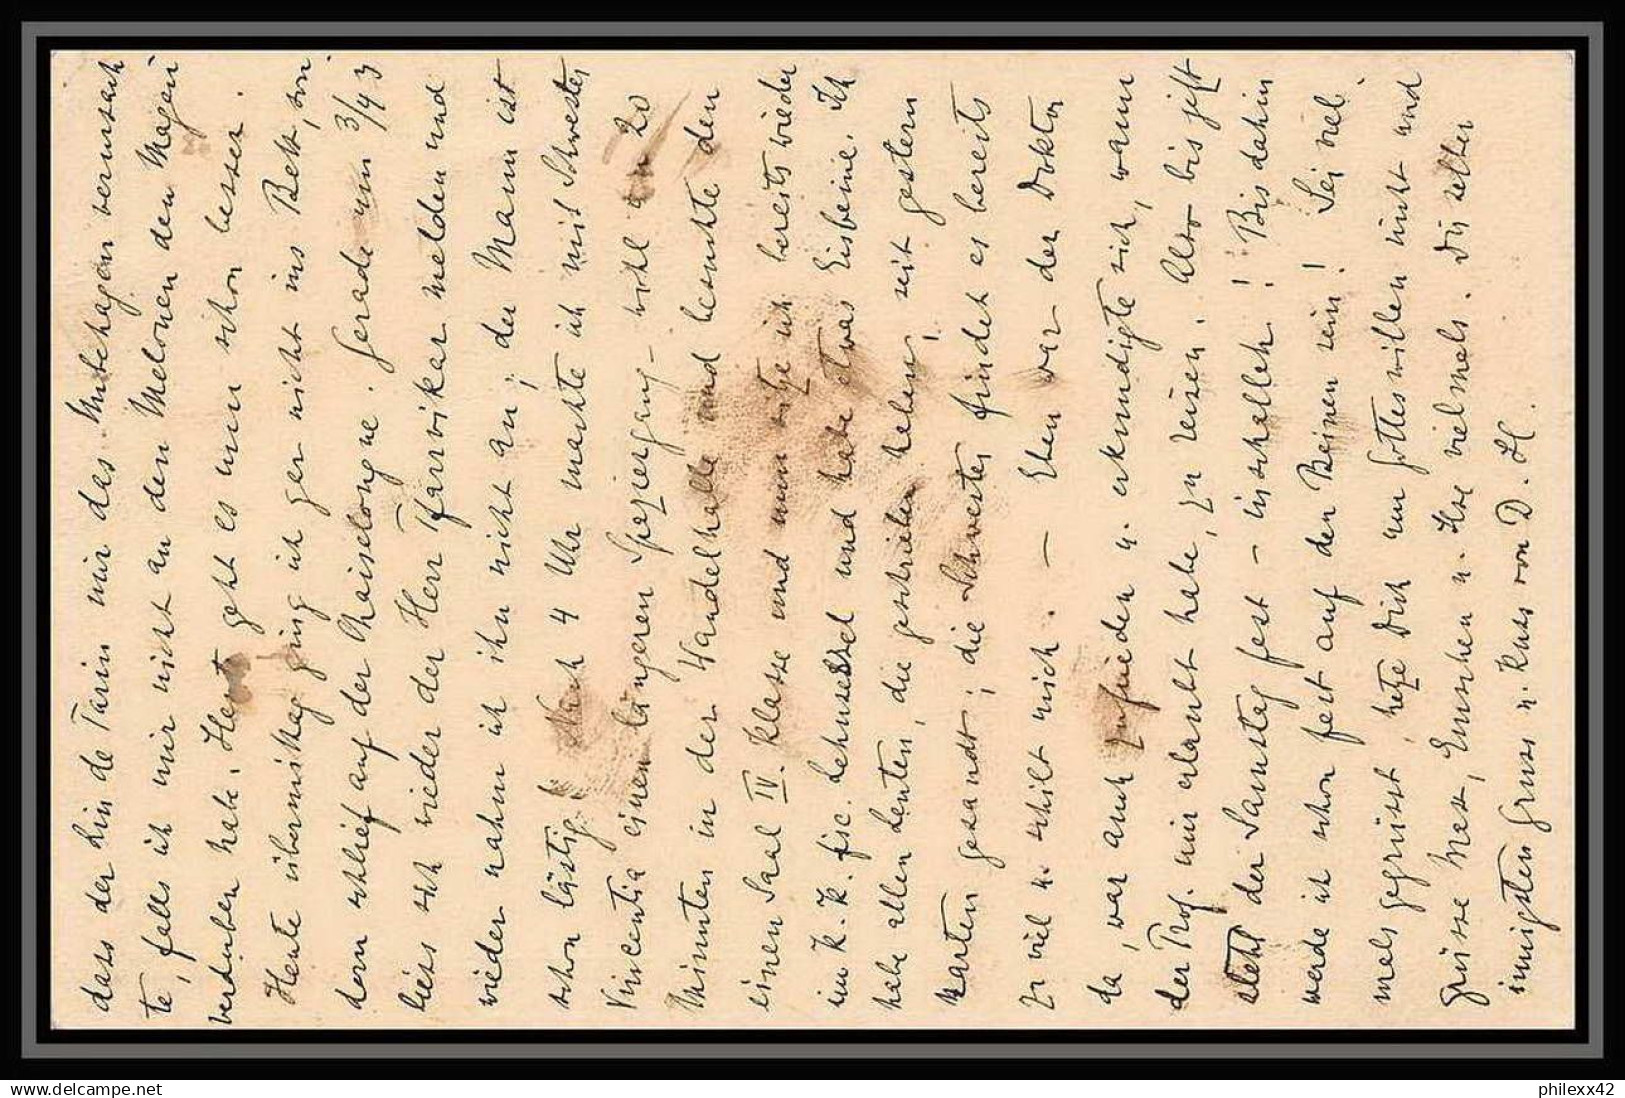 dass der hinde Tarin mir das Unbehagen verursach
te, falls ich mir nicht an den Melonen den Magen
verdorben habe. Heut geht es nun schon besser.
Heute übermittag ging ich gar nicht ins Bett, son-
dern schlief auf der Chaiselongue. Gerade um 3/4 3
liess sich wieder der Herr Pfarrvikar melden und
wieder nahm ich ihn nicht an; der Mann ist
schon lästig. Nach 4 Uhr machte ich mit Schwester
Vincentia einen längeren Spaziergang – wohl an 20
Minuten in der Wandelhalle und besuchte den
einen Saal IV. Klasse und nun sitze ich bereits wieder
im K. K. fisc. Lehnsessel und habe etwas Eisbeine. Ich
habe allen Leuten, die geschrieben haben, seit gestern
Karten gesandt; die Schwester findet es bereits
zu viel u. schilt mich. — Eben war der Doktor
da, war auch zufrieden u. erkundigte sich, wann
der Prof. mir erlaubt habe, zu reisen. Also bis jetzt
steht der Samstag fest – inschallah! Bis dahin
werde ich schon fest auf den Beinen sein! Sei viel-
mals gegrüsst, hetze Dich um Gotteswillen nicht und
grüsse Max, Emschen u. Ilse vielmals. Dir selber
innigsten Gruss u. Kuss von D. H.
delcampe.net
philexx42